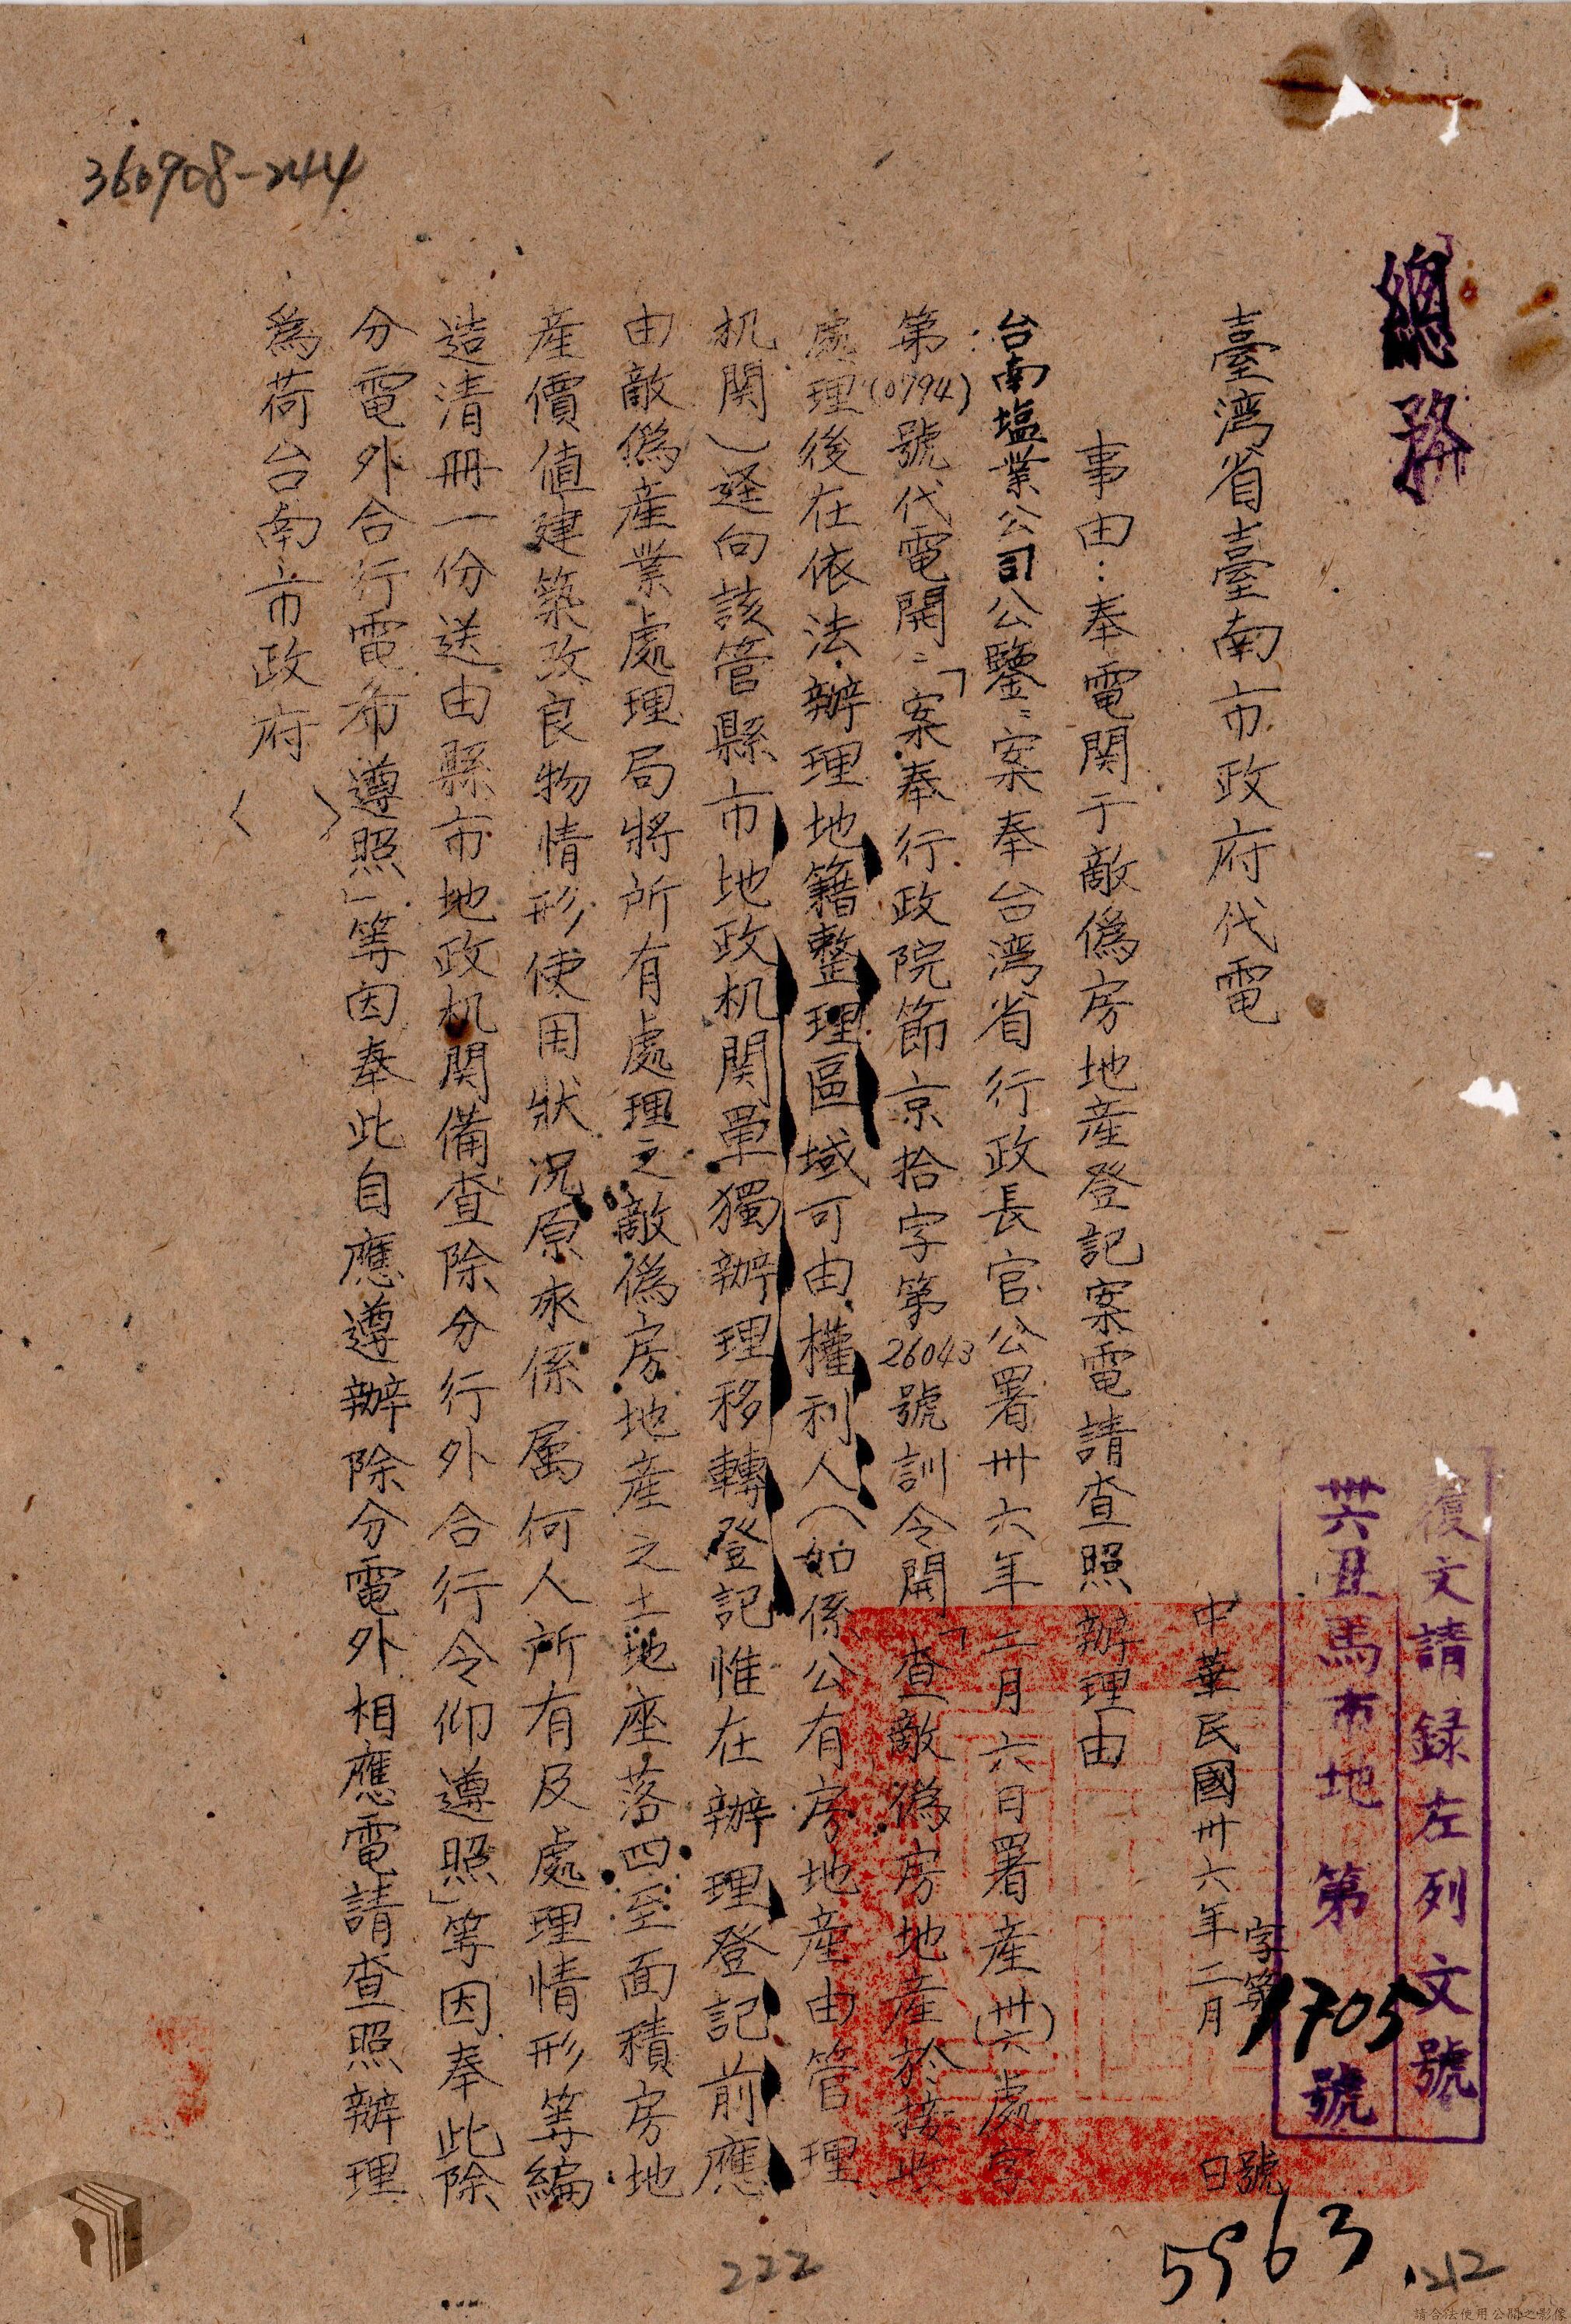 360908-244
總務
復文請録左列文號
卅六丑馬市地 第 號
1705
臺湾省臺南市政府代電
字第 號
中華民國卅六年二月 日
事由：奉電関于敵偽房地産登記案電請查照辦理由
台南塩業公司公鑒：案奉台湾省行政長官公署卅六年二月六日署産(卅六)處字
第(0794)號代電開：「案奉行政院節京拾字第26043號訓令開「查敵偽房地産於接收
處理後在依法辦理地籍整理區域可由權利人(如係公有房地産由管理
机関)逕向該管縣市地政机関單獨辦理移轉登記惟在辦理登記前應
由敵偽産業處理局將所有處理之敵偽房地産之土地座落四至面積房地
産價値建築改良物情形使用狀况原來係屬何人所有及處理情形等編
造清冊一份送由縣市地政机関備查除分行外合行令仰遵照」等因奉此除
分電外合行電希遵照」等因奉此自應遵辦除分電外相應電請查照辦理
為荷台南市政府( )
5963
1212
222
請合法使用公開之影像